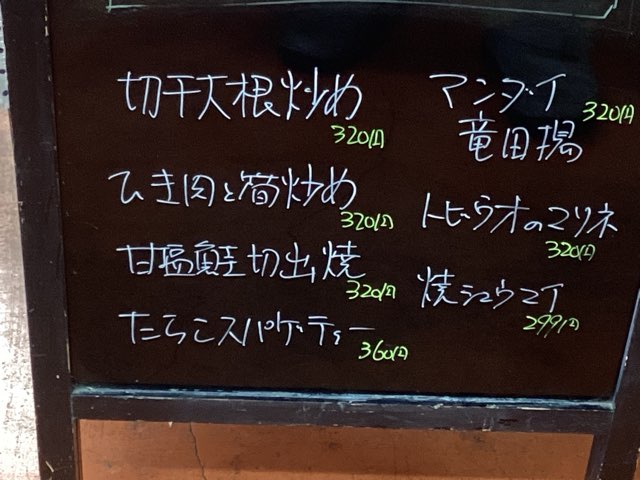 切干大根炒め
320円
ひき肉と筍炒め
320円
甘塩鮭切出焼
320円
たらこスパゲティー
360円
マンダイ
竜田揚
320円
トビウオのマリネ
320円
焼シュウマイ
299円